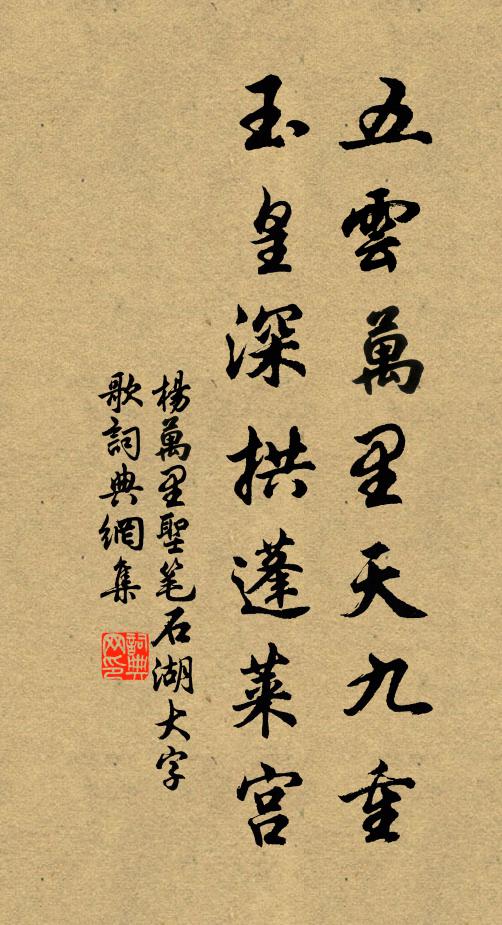 五雲萬里天九重
玉皇深拱蓬萊宫
楊萬里聖笔石湖大字
歌詞典網集
詞典网印